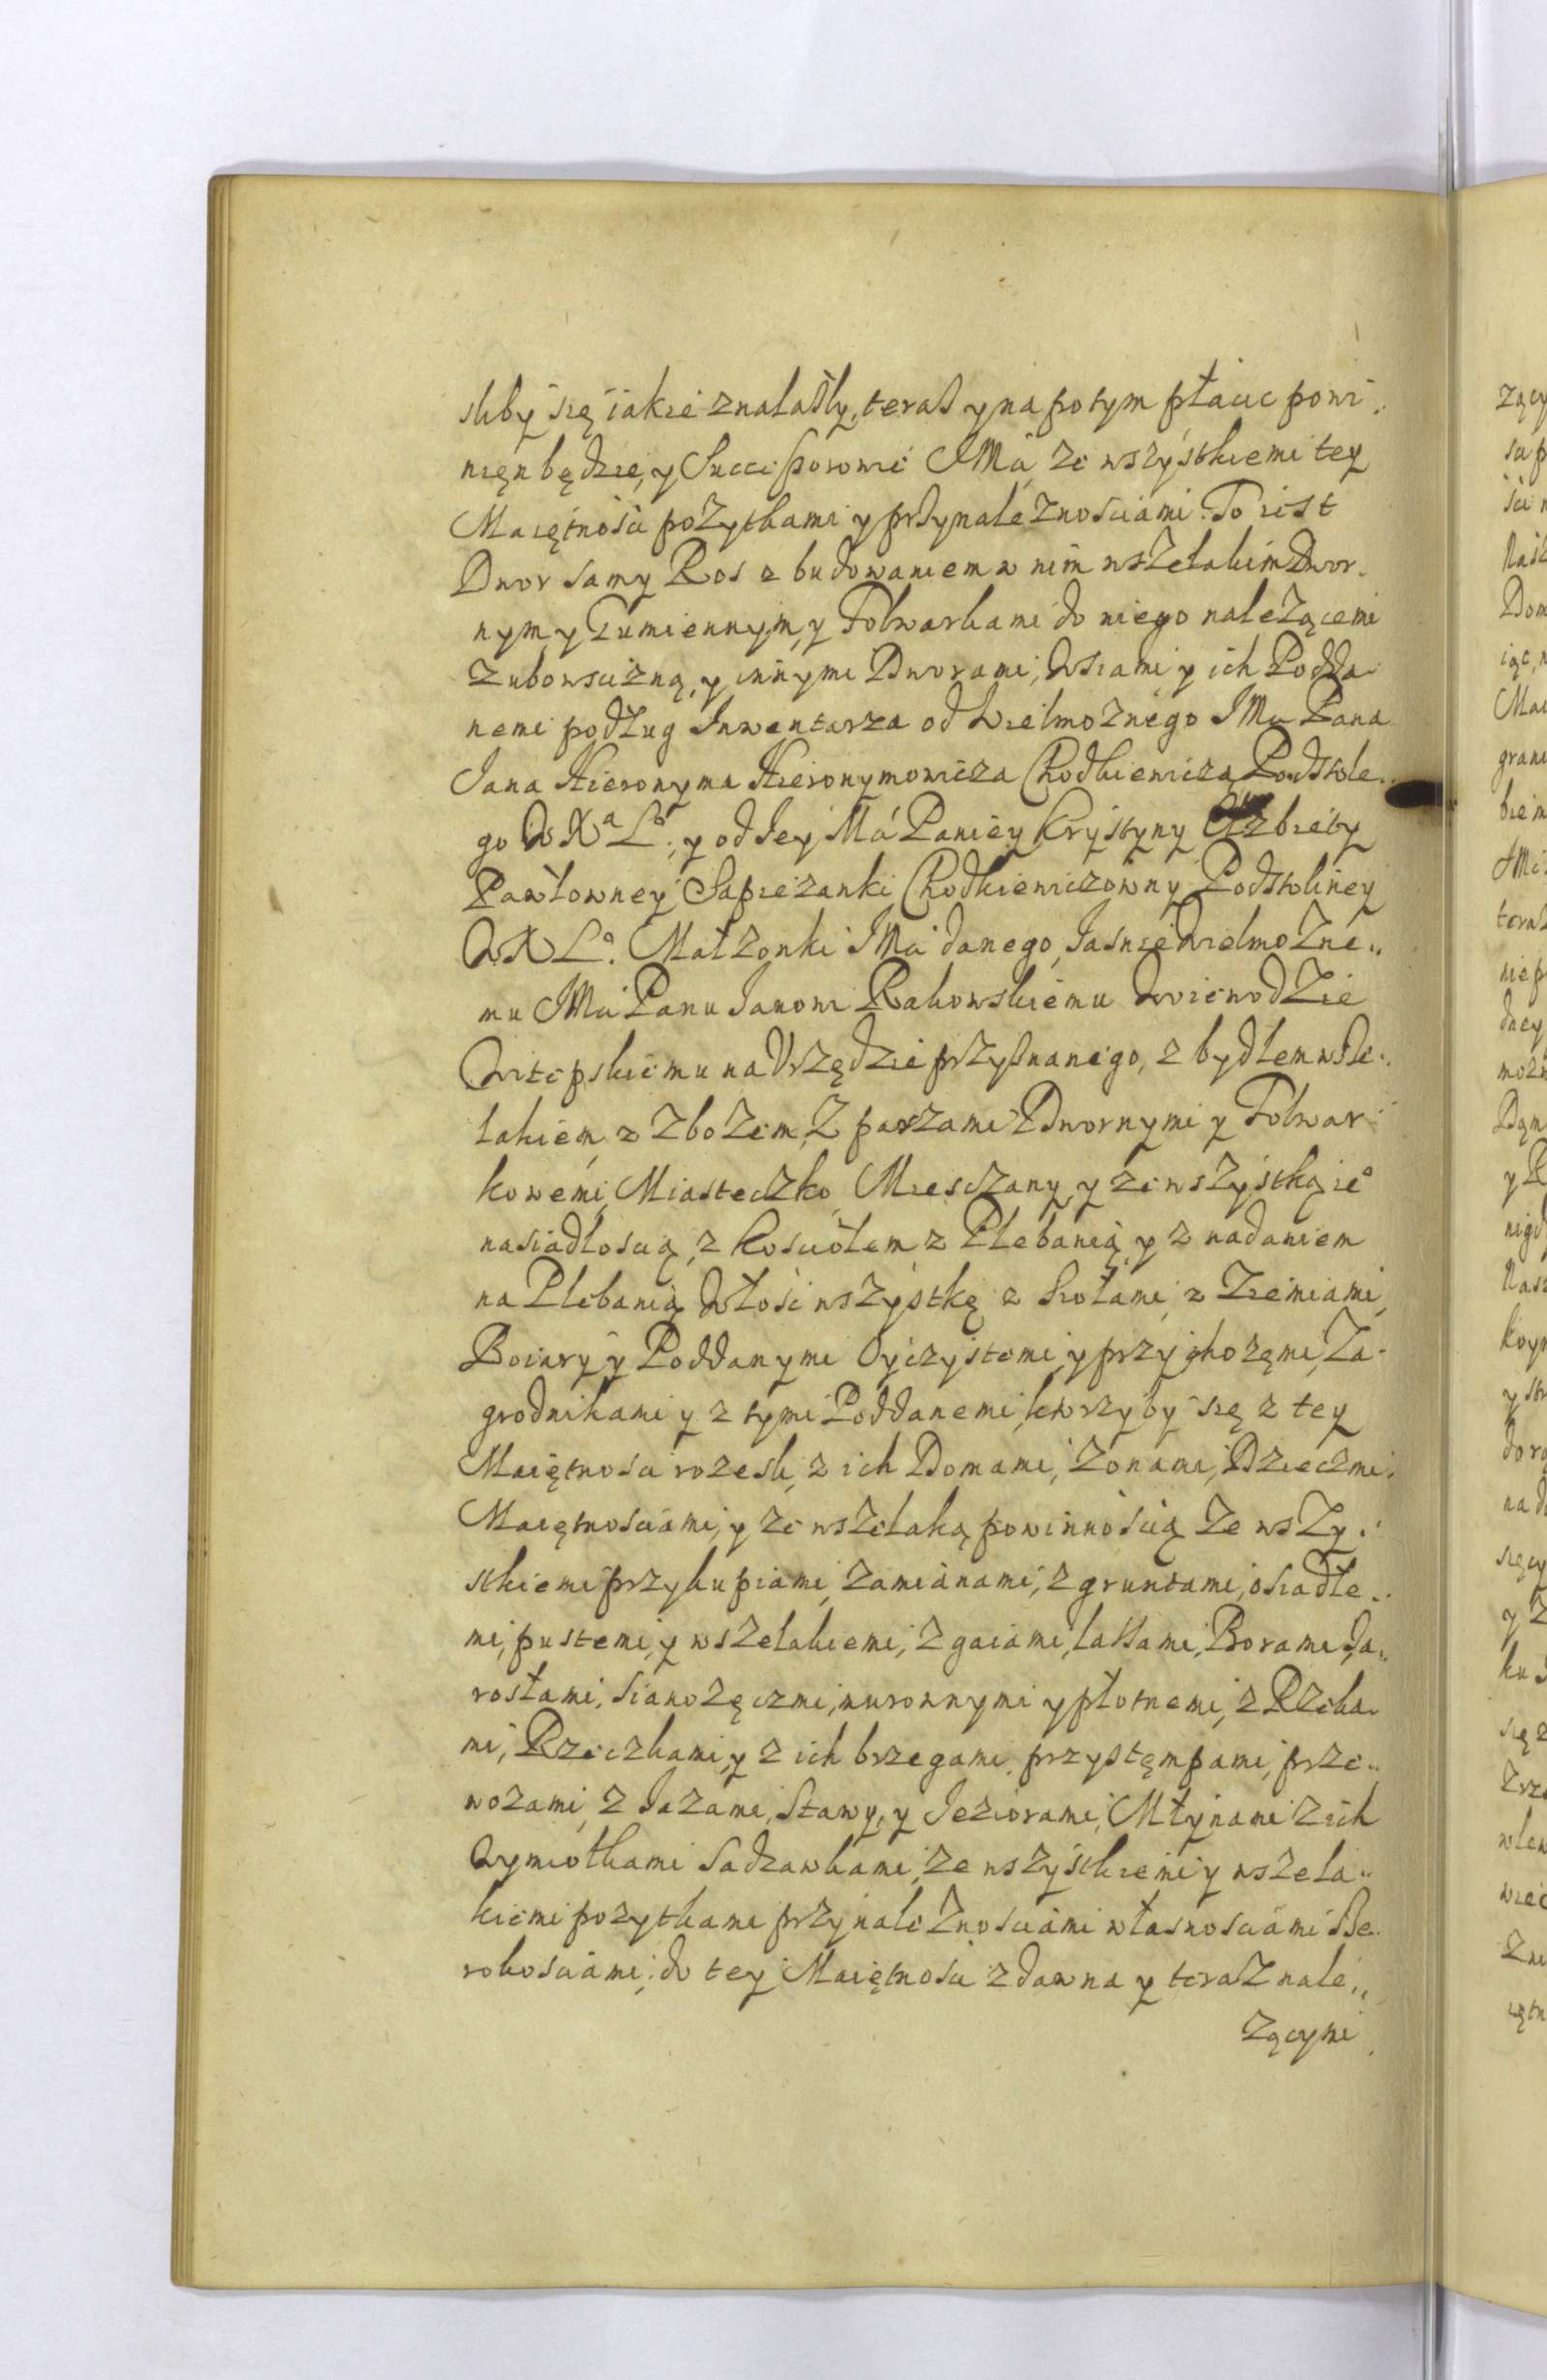 sliby się iakie znalasły, teras y na potym płacic powi:
nięn będzie, y Succeſsorowie JMci ze wszystkiemi tey
Maiętnosci pożytkami y przynaleznosciami. To iest
Dwor samy Ros z budowaniem w nim wszelakim Dwor-
nym, y Gumiennym, y Folwarkami do niego należącemi
Zubowscizną, y innymi Dworami, Wsiami y ich Podda-
nemi podług Inwentarza od Wielmożnego JMci Pana
Jana Hieronyma Hieronymowicza Chodkiewicza Podstole..
go W Xa Lo, y od Jey Mci Paniey Krystyny Elzbiety
Pawłowney Sapiezanki Chodkiewiczowny Podstoliney
W X Lo. Małzonki JMci danego, Jasnie Wielmożne..
mu JMci Panu Janowi Rakowskiemu Woiewodzie
Witepskiemu na Urzędzie przyznanego, z bydłem wsze-
lakiem, z Zbożem, Z paszami Dwornymi y Folwar-
kowemi, Miasteczko, Miesczany, y ze wszystką ie°
nasiadłoscią, z Kosciołem z Plebanią y z nadaniem
na Plebanią, Włość wszystkę z Siołami, z Ziemiami,
Boiary y Poddanymi Oyczystemi y przychozęmi, Za-
grodnikami y z tymi Poddanemi, ktorzyby się z tey
Maiętnosci rozesli, z ich Domami, Zonami, Dziećzmi,
Maiętnosciami, y ze wszelaką powinnoscią Ze wszy-
stkiemi przykupiami, zamianami, z gruntami, osiadłe..
mi, pustemi, y wszelakiemi, z gaiami, laſsami, Borami, Za..
rosłami, Sianozęczmi, murownymi y płotnemi, z Rzeka-
mi, Rzeczkami, y z ich brzegami, przystęmpami, prze..
wozami, z Jazami, Stawy, y Jeziorami, Młynami z ich
Wymiołkami, Sadzawkami, ze wszystkiemi y wszela..
kiemi pozytkami przynależnosciami własnosciami Sze-
rokosciami, do tey Maiętnosci zdawna y teraz nale..
zącymi